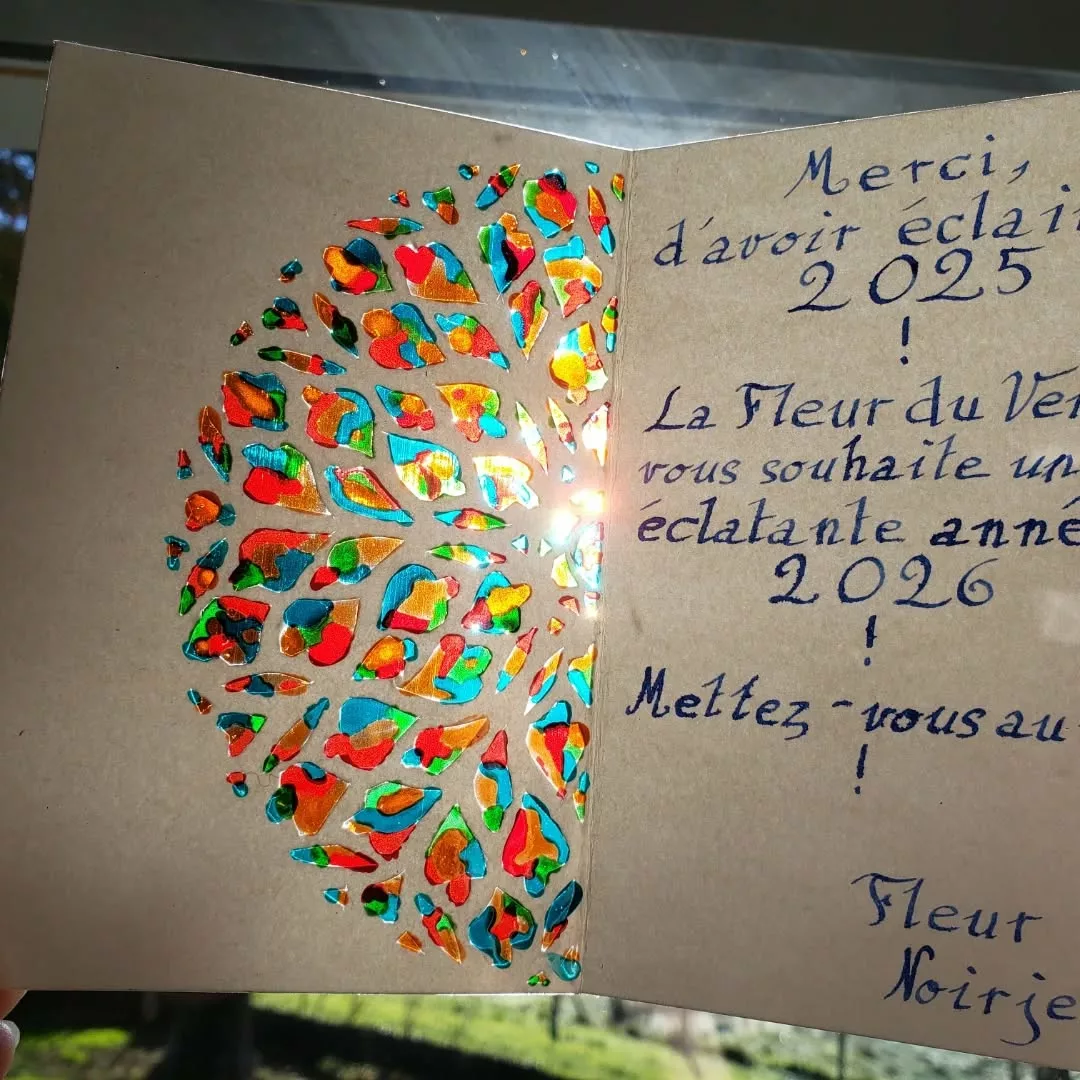 Merci,
d'avoir éclai
2025
!
La Fleur du Ver
vous souhaite un
éclatante anné
2026
!
Mettez-vous au
!
Fleur
Noirje